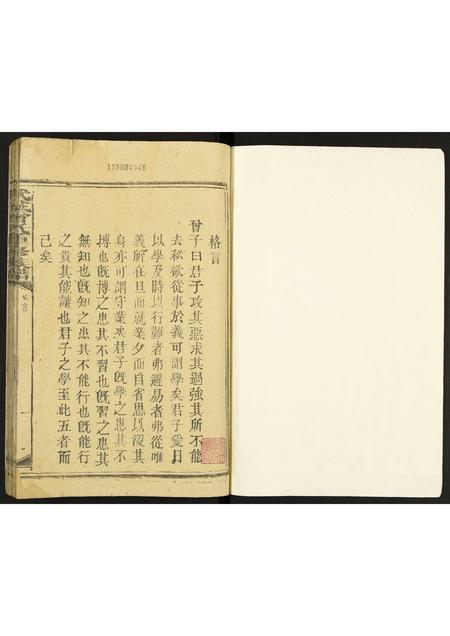 189004948
格言
曾子曰君子攻其惡求其過強其所不能
去私欲從事於義可謂學矣君子愛日
以學及時以行難者弗避易者弗從唯
義所在旦而就業夕而自省思以沒其
身亦可謂守業矣君子旣學之患其不
博也旣博之患其不習也旣習之患其
無知也旣知之患其不能行也旣能行
之貴其能讓也君子之學至此五者而
已矣